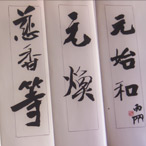 元始和
元煥
慈香等